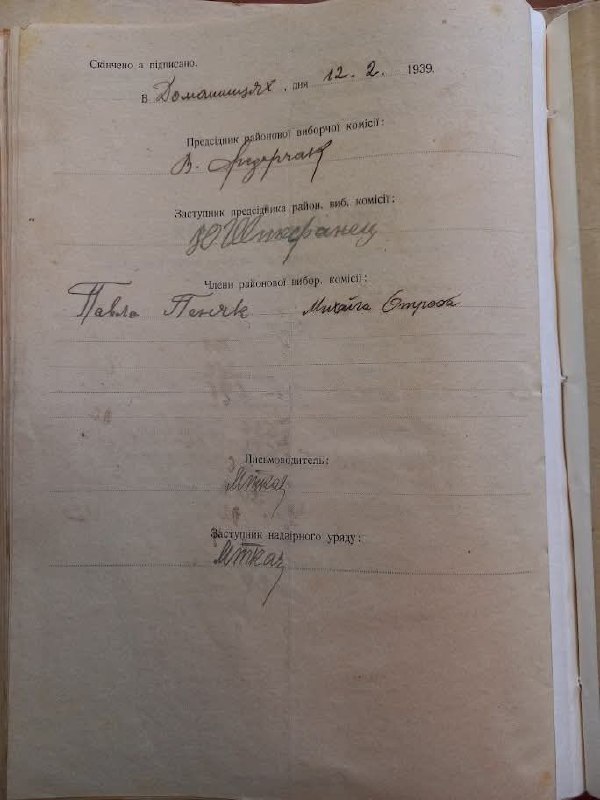 Скінчено а підписано.
В Доманинцях, дня 12. 2. 1939.
Предсідник районової виборчої комісії:
В.
Заступник предсідника район. виб. комісії:
Ю Штефанец
Члени районової вибор. комісії:
Павло Пеняк Михайло
Письмоводитель:
МТкач
Заступник надвірного уряду:
МТкач